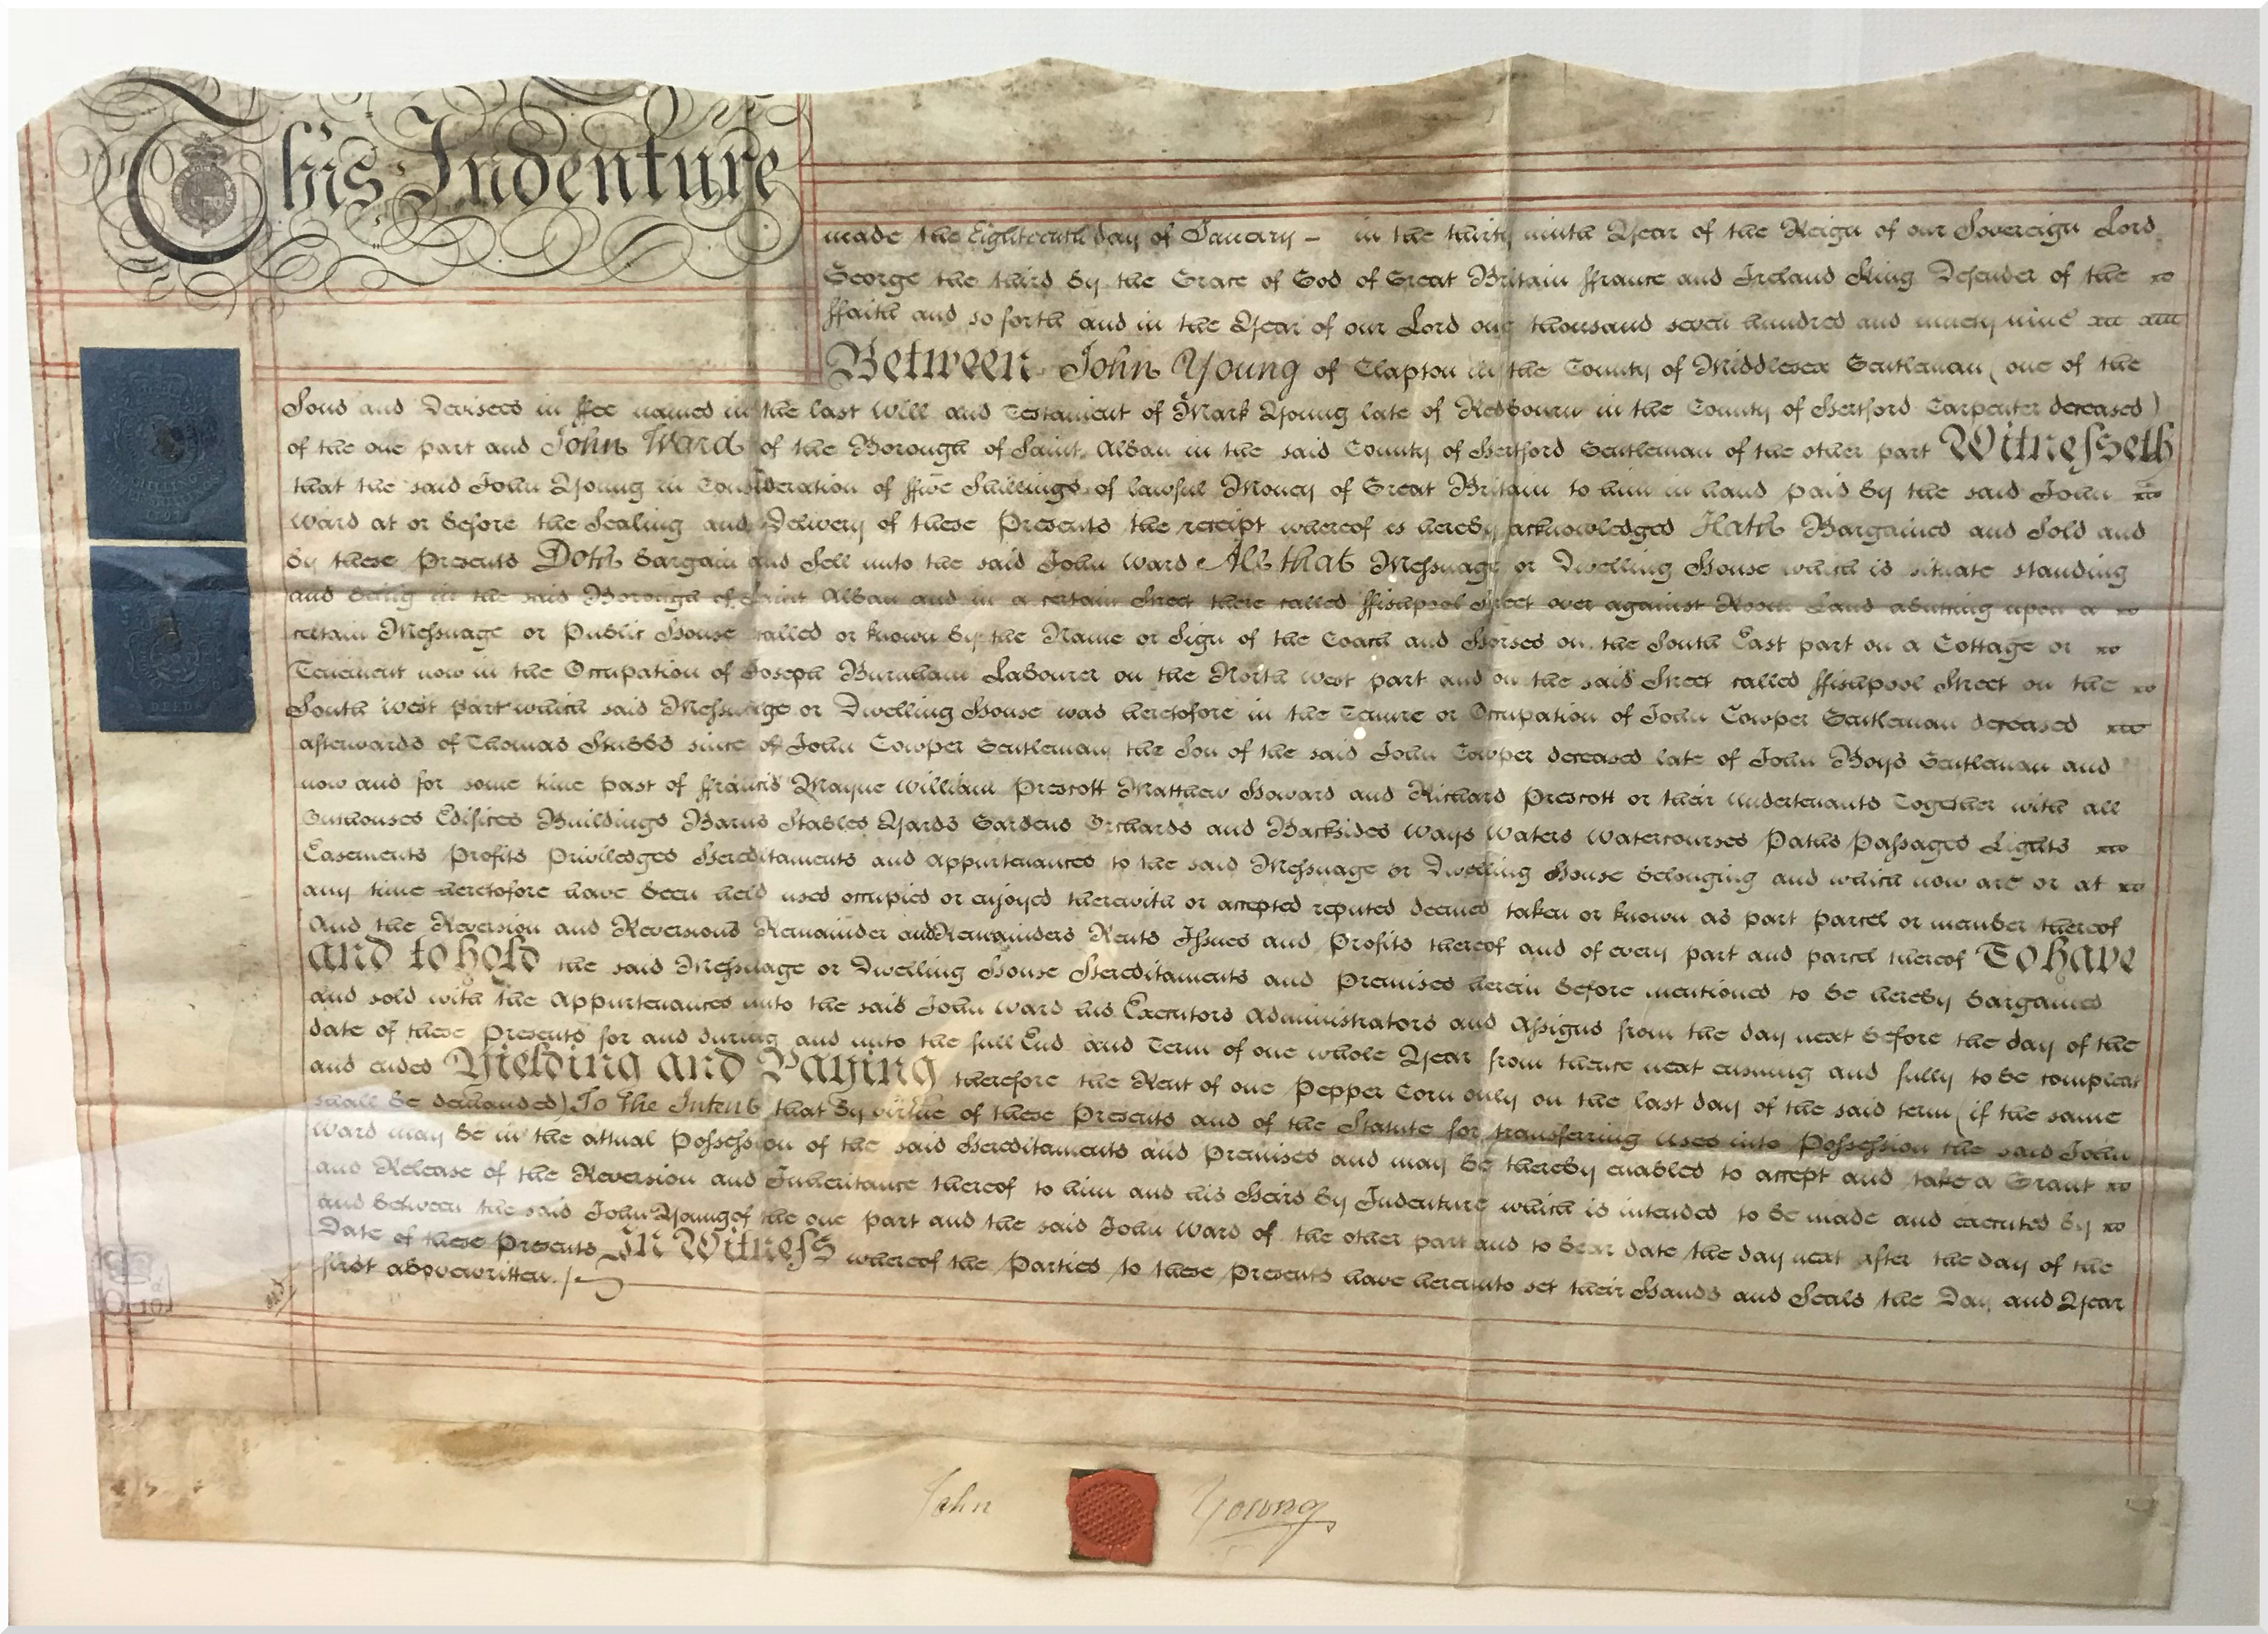 This Indenture
made the Eighteenth day of January – in the thirty ninth Year of the Reign of our Sovereign Lord
George the third by the Grace of God of Great Britain ffrance and Ireland King Defender of the
ffaith and so forth and in the Year of our Lord one thousand seven hundred and ninety nine
Between John Young of Clapton in the County of Middlesex Gentleman (one of the
Sons and Devisees in ffee named in the last Will and Testament of Mark Young late of Redbourn in the County of Hertford Carpenter deceased)
of the one part and John Ward of the Borough of Saint Alban in the said County of Hertford Gentleman of the other part Witnesseth
that the said John Young in Consideration of ffive Shillings of lawful Money of Great Britain to him in hand paid by the said John
Ward at or before the Sealing and Delivery of these Presents the receipt whereof is hereby acknowledged Hath Bargained and Sold and
by these Presents Doth bargain and Sell unto the said John Ward All that Messuage or Dwelling House which is situate standing
and being in the said Borough of Saint Alban and in a certain Street there called ffishpool Street over against Land abutting upon a
certain Messuage or Public House called or known by the Name or Sign of the Coach and Horses on the South East part on a Cottage or
Tenement now in the Occupation of Joseph Burnham Labourer on the North West part and on the said Street called ffishpool Street on the
South West part which said Messuage or Dwelling House was heretofore in the Tenure or Occupation of John Cowper Gentleman deceased
afterwards of Thomas Stubbs since of John Cowper Gentleman the Son of the said John Cowper deceased late of John Boys Gentleman and
now and for some time past of ffrancis Mayne William Prescott Matthew Howard and Richard Prescott or their Undertenants Together with all
Outhouses Edifices Buildings Barns Stables Yards Gardens Orchards and Backsides Ways Waters Watercourses Paths Passages Lights
Easements Profits Priviledges Hereditaments and Appurtenances to the said Messuage or Dwelling House belonging and which now are or at
any time heretofore have been held used occupied or enjoyed therewith or accepted reputed deemed taken or known as part parcel or member thereof
And the Reversion and Reversions Remainder and Remainders Rents Issues and Profits thereof and of every part and parcel thereof To have
and to hold the said Messuage or Dwelling House Hereditaments and Premises herein before mentioned to be hereby bargained
and sold with the Appurtenances unto the said John Ward his Executors Administrators and Assigns from the day next before the day of the
date of these Presents for and during and unto the full End and Term of one whole Year from thence next ensuing and fully to be compleat
and ended Yielding and Paying therefore the Rent of one Pepper Corn only on the last day of the said term (if the same
shall be demanded) To the Intent that by virtue of these Presents and of the Statute for transferring uses into Possession the said John
Ward may be in the actual Possession of the said Hereditaments and Premises and may be thereby enabled to accept and take a Grant
and Release of the Reversion and Inheritance thereof to him and his Heirs by Indenture which is intended to be made and executed by
and between the said John Young of the one part and the said John Ward of the other part and to bear date the day next after the day of the
Date of these Presents In Witness whereof the Parties to these Presents have hereunto set their Hands and Seals the Day and Year
first abovewritten.
John Young